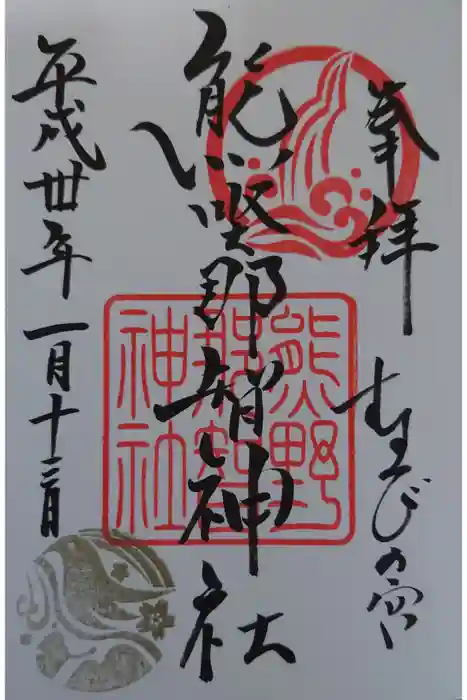 奉拝 むすびの宮
熊野那智神社
平成卅年一月十三日
熊野
那智
神社